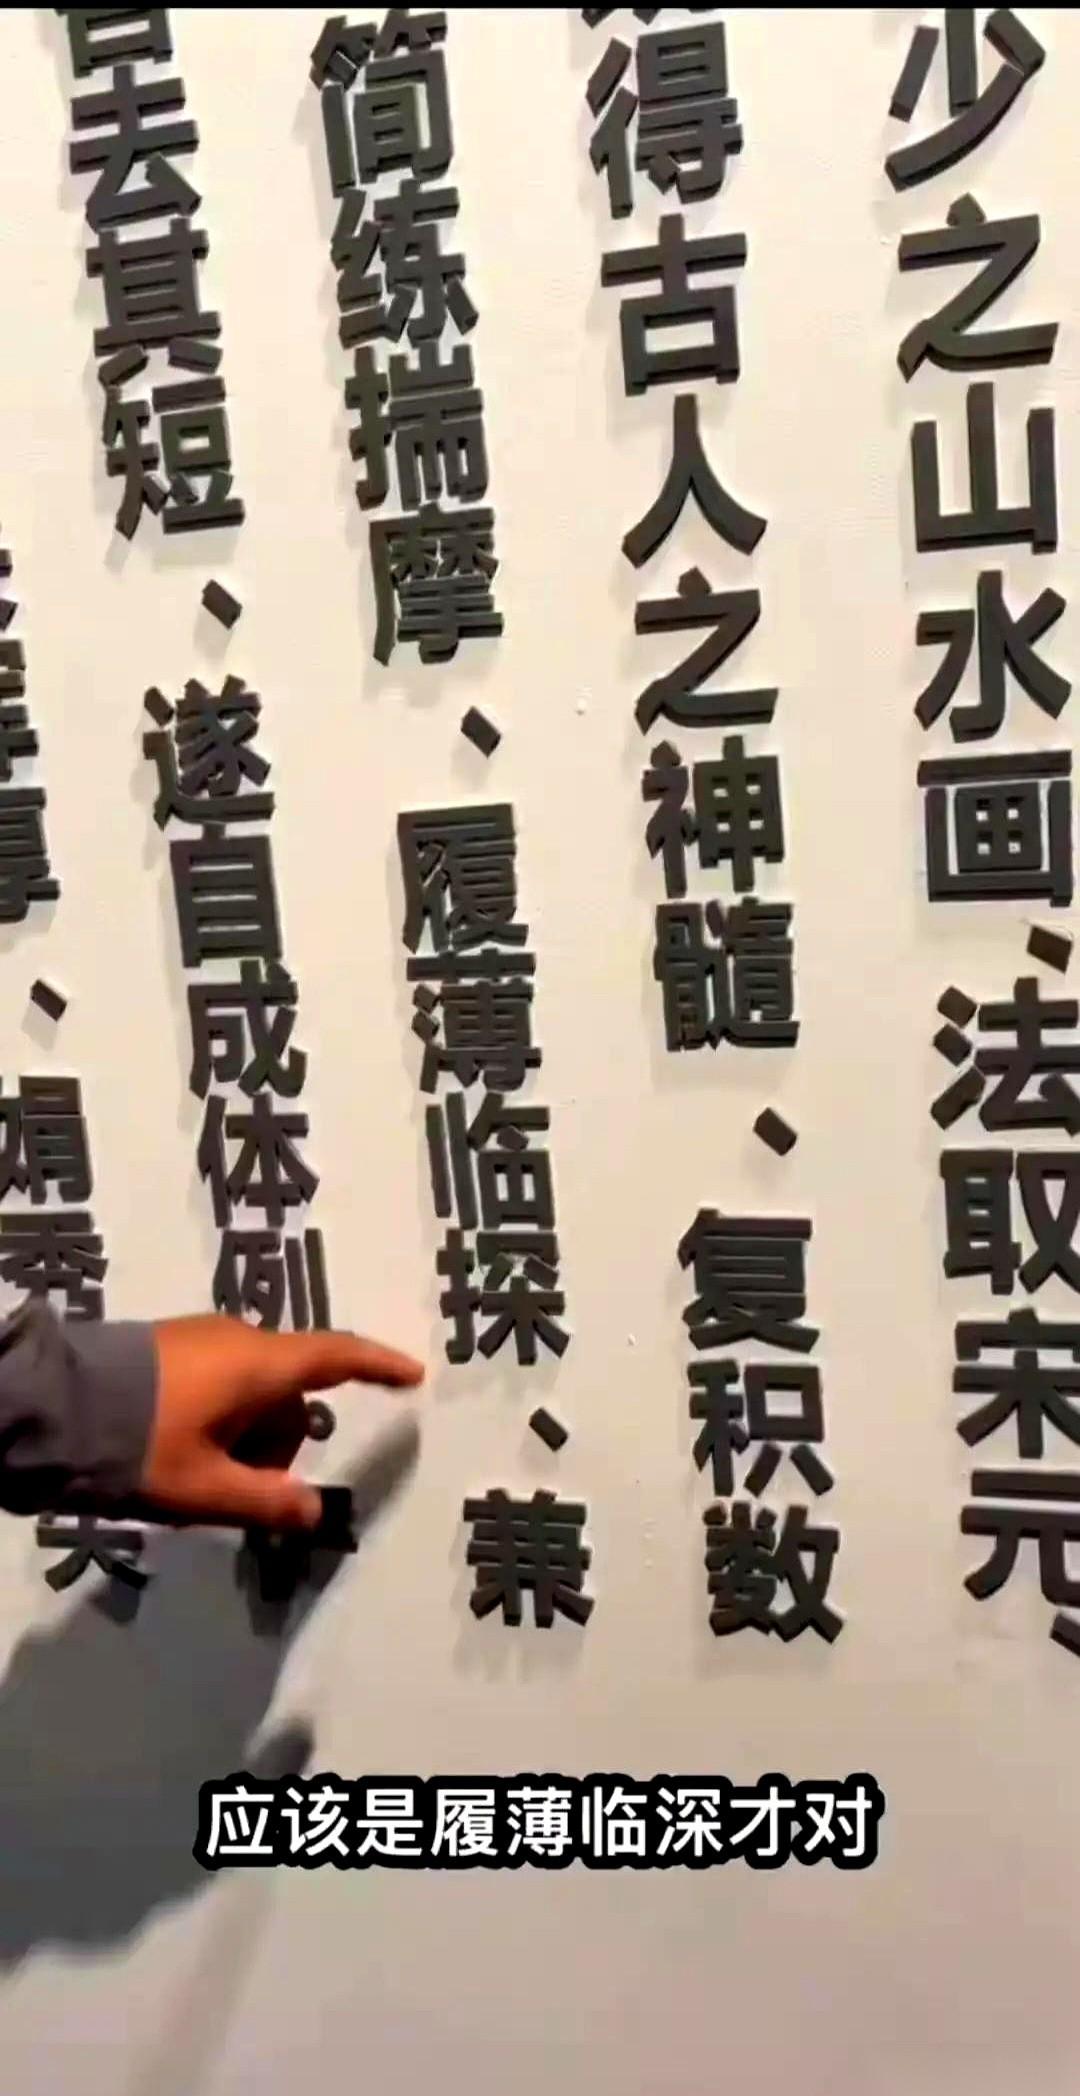 少之山水画、法取宋元、
得古人之神髓、复积数
简练揣摩、履薄临探、兼
去其短、遂自成体例。
娟秀
应该是履薄临深才对